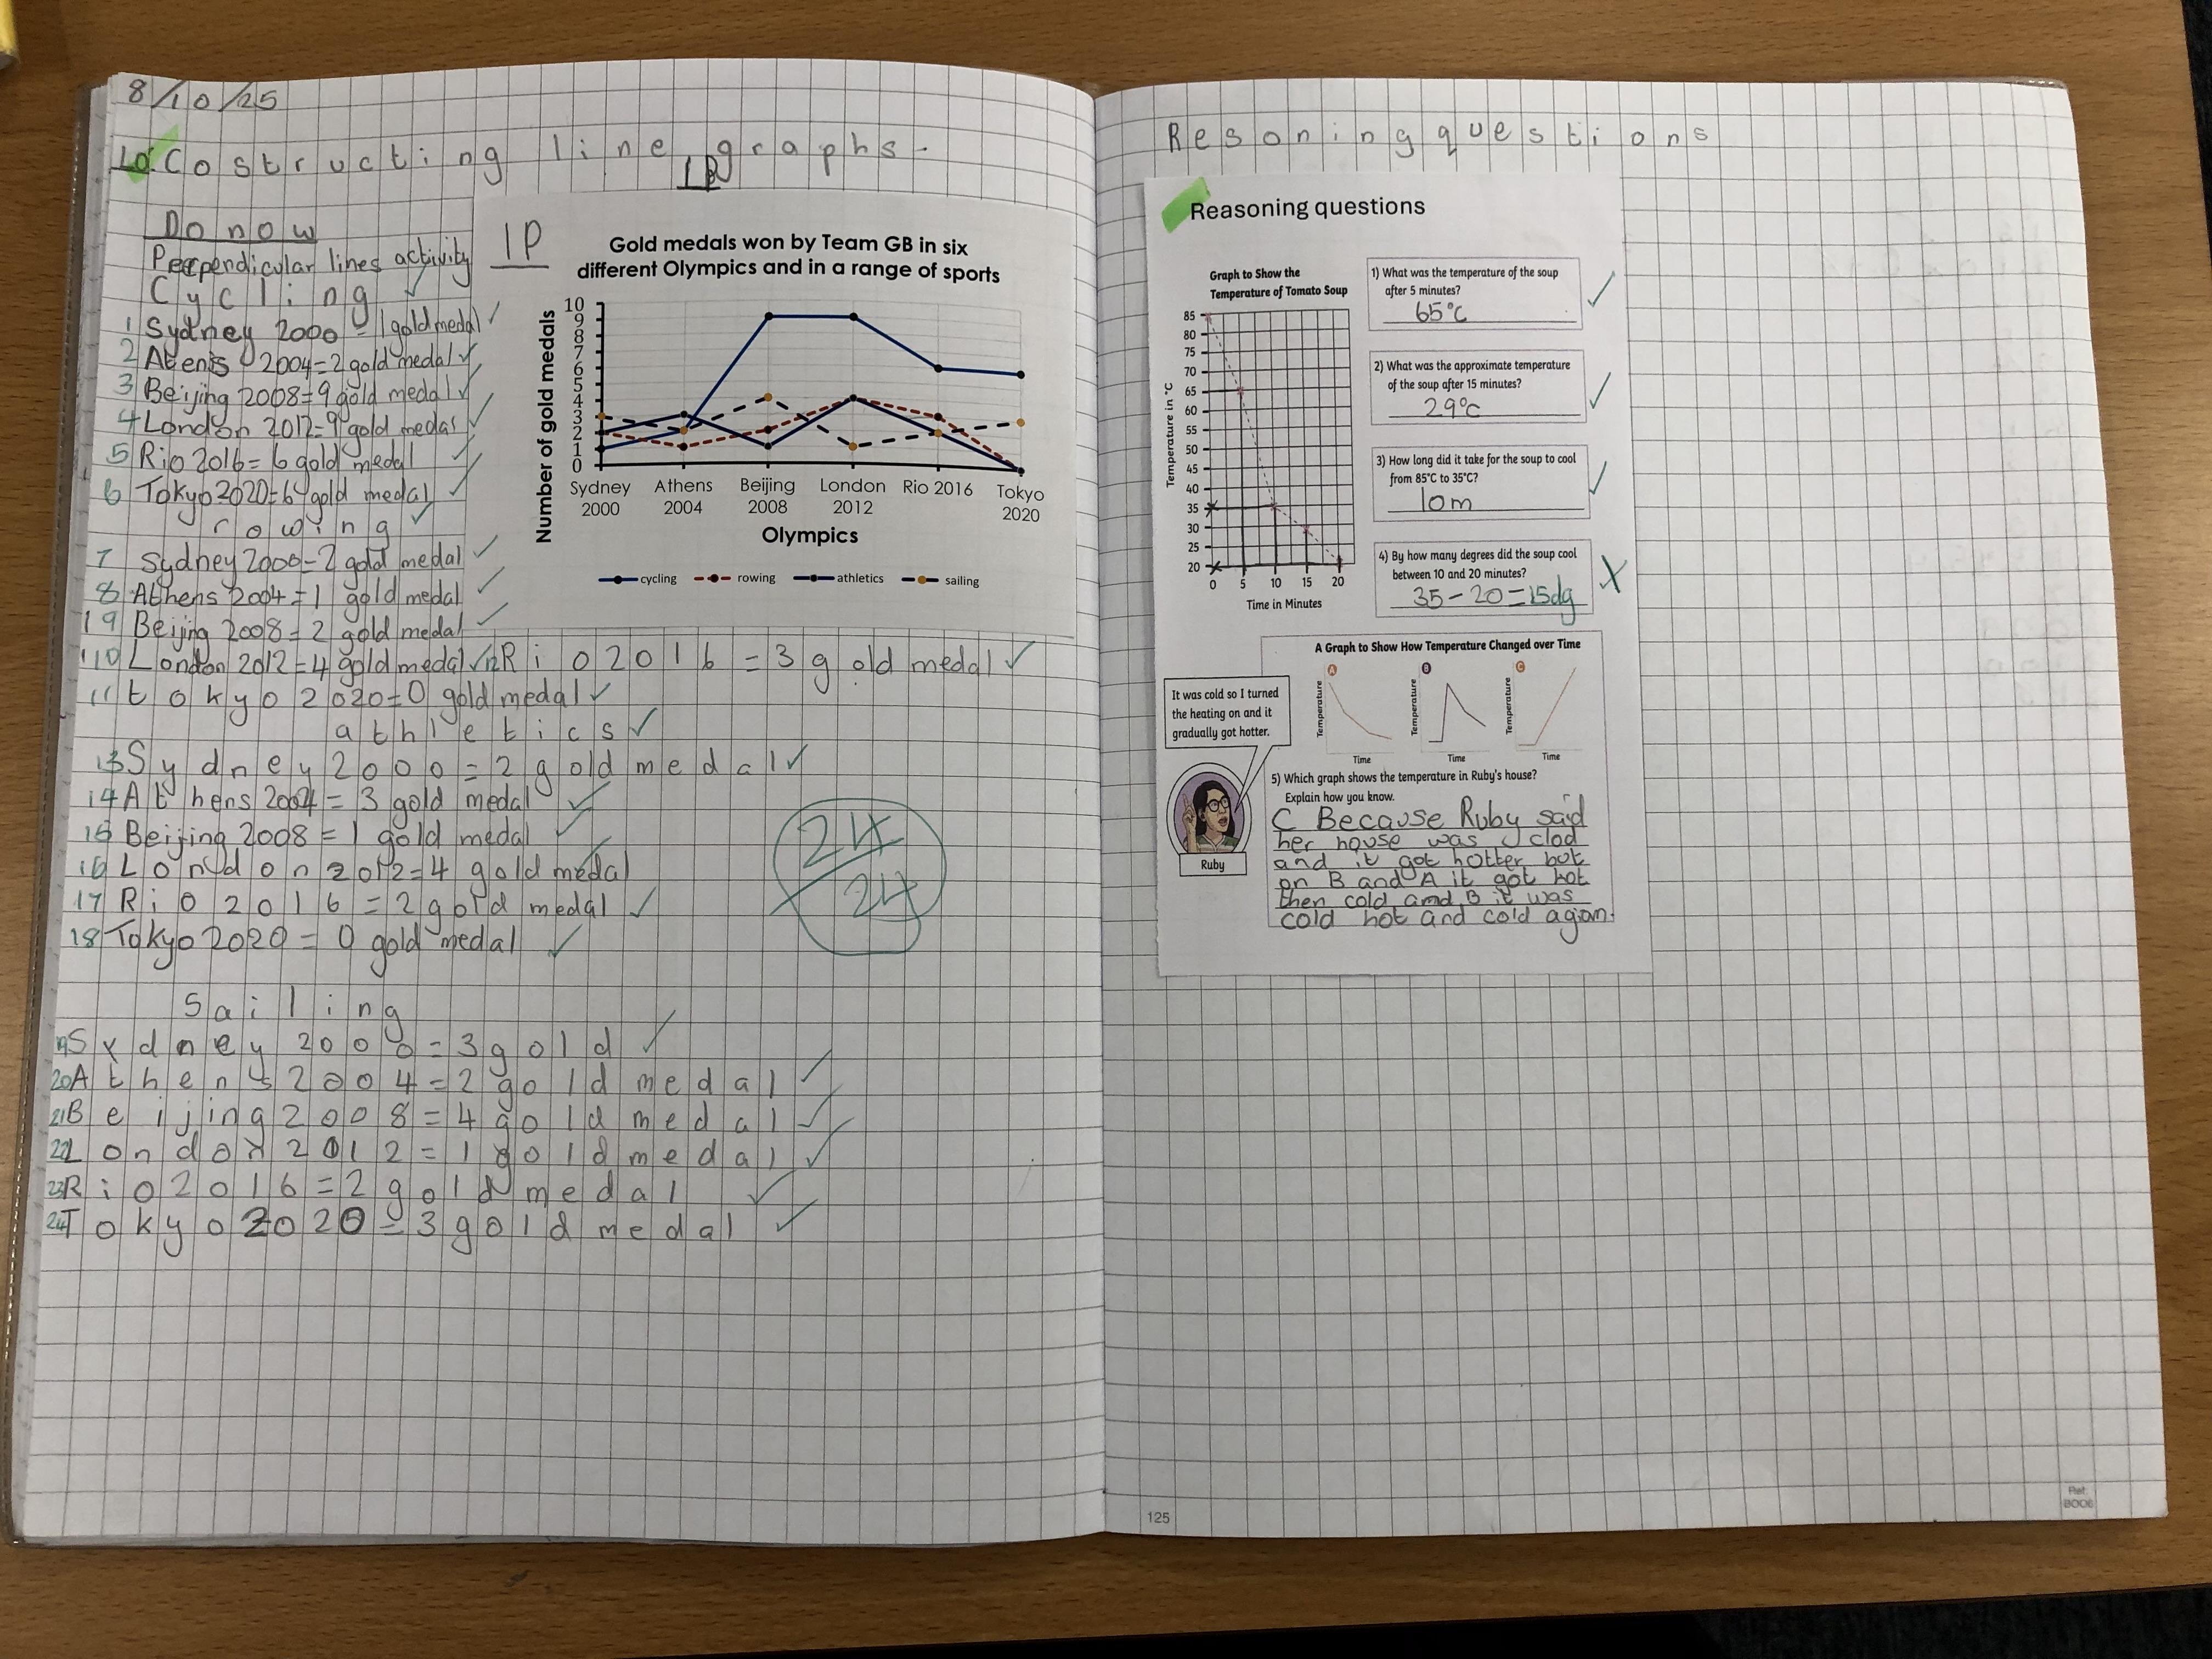 8/10/25
LO: Costructing line graphs.
Do now
Perpendicular lines activity
Cycling
1 Sydney 2000 = 1 gold medal
2 Atens 2004 = 2 gold medal
3 Beijing 2008 = 9 gold medal
4 London 2012 = 9 gold medas
5 Rio 2016 = 6 gold medal
6 Tokyo 2020 = 6 gold medal
rowing
7 Sydney 2000 = 2 gold medal
8 Athens 2004 = 1 gold medal
9 Beijing 2008 = 2 gold medal
10 London 2012 = 4 gold medal 12 Rio 2016 = 3 gold medal
11 tokyo 2020 = 0 gold medal
athletics
13 Sydney 2000 = 2 gold medal
14 Athens 2004 = 3 gold medal
15 Beijing 2008 = 1 gold medal
16 London 2012 = 4 gold medal
17 Rio 2016 = 2 gold medal
18 Tokyo 2020 = 0 gold medal
24/24
Sailing
19 Sydney 2000 = 3 gold
20 Athens 2004 = 2 gold medal
21 Beijing 2008 = 4 gold medal
22 London 2012 = 1 gold medal
23 Rio 2016 = 2 gold medal
24 Tokyo 2020 = 3 gold medal
IP
Gold medals won by Team GB in six
different Olympics and in a range of sports
Number of gold medals
10
9
8
7
6
5
4
3
2
1
0
Sydney Athens Beijing London Rio 2016 Tokyo
2000 2004 2008 2012 2020
Olympics
cycling rowing athletics sailing
Resoning questions
Reasoning questions
Graph to Show the
Temperature of Tomato Soup
Temperature in °C
85
80
75
70
65
60
55
50
45
40
35
30
25
20
0 5 10 15 20
Time in Minutes
1) What was the temperature of the soup
after 5 minutes?
65°c
2) What was the approximate temperature
of the soup after 15 minutes?
29°c
3) How long did it take for the soup to cool
from 85°C to 35°C?
10m
4) By how many degrees did the soup cool
between 10 and 20 minutes?
35 - 20 = 15dg
A Graph to Show How Temperature Changed over Time
A B C
Temperature Temperature Temperature
Time Time Time
It was cold so I turned
the heating on and it
gradually got hotter.
Ruby
5) Which graph shows the temperature in Ruby's house?
Explain how you know.
C Because Ruby said
her house was clod
and it got hotter but
on B and A it got hot
then cold amd B it was
cold hot and cold agian.
125
Ref:
BOO6